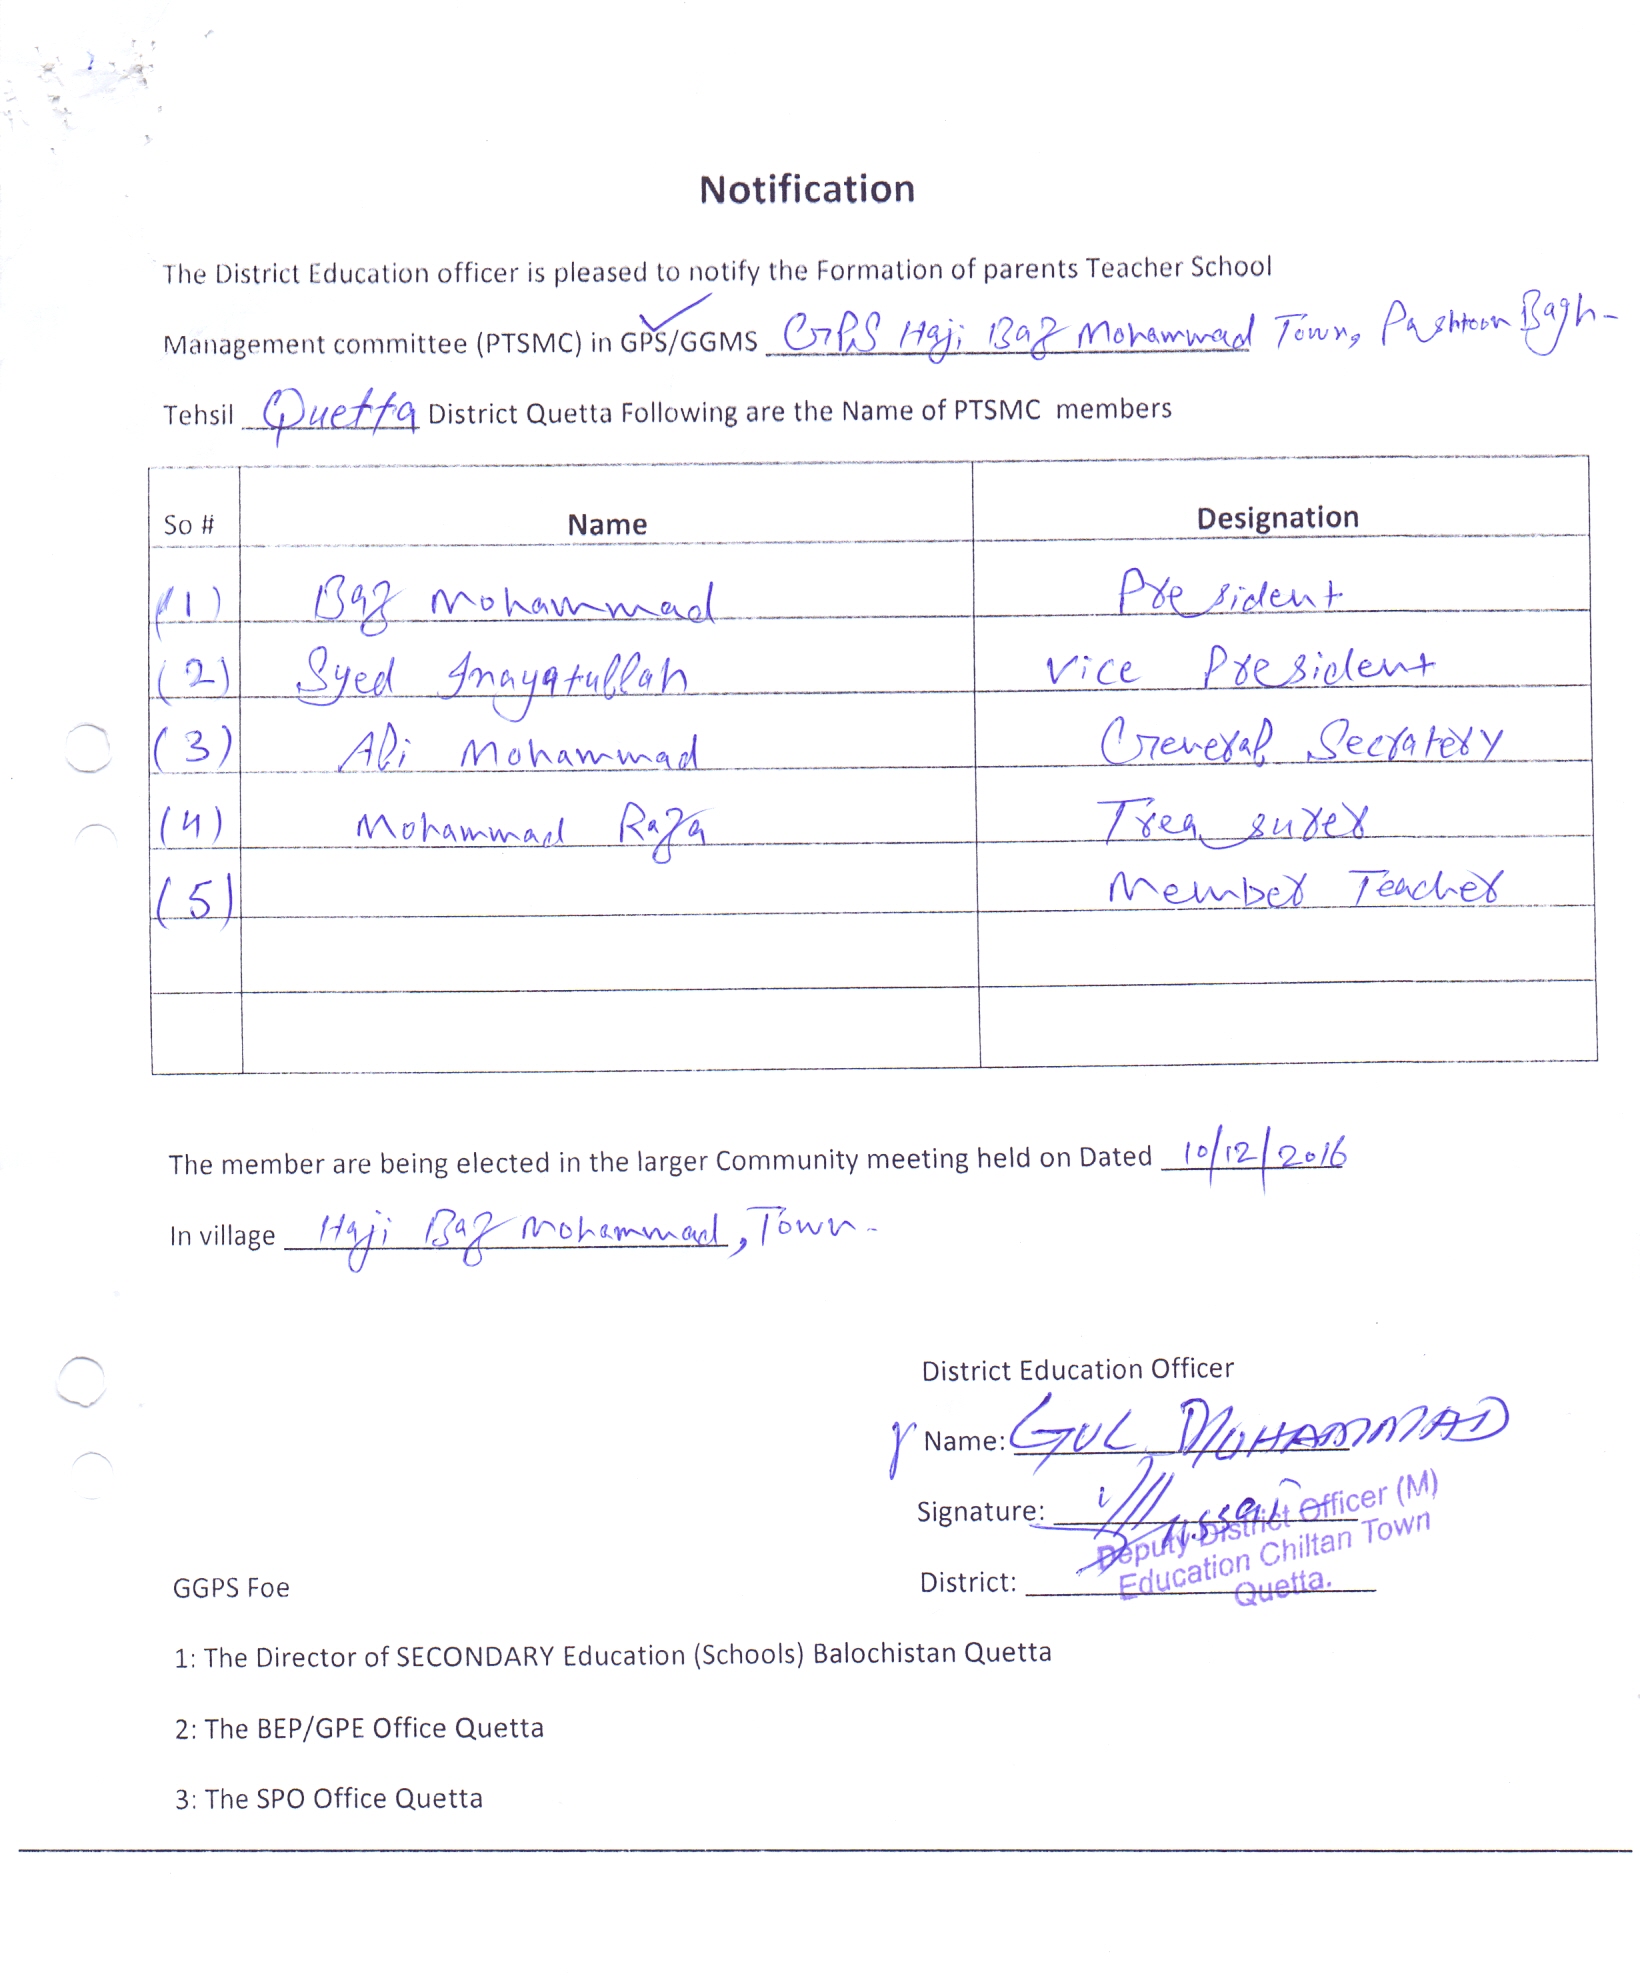 Notification
The District Education officer is pleased to notify the Formation of parents Teacher School
Management committee (PTSMC) in GPS/GGMS GPS Haji Baz Mohammad Town, Pashtoon Bagh-
Tehsil Quetta District Quetta Following are the Name of PTSMC members
So # Name Designation
(1) Baz Mohammad President
(2) Syed Inayatullah Vice President
(3) Ali Mohammad General Secratery
(4) Mohammad Raza Treasurer
(5) Member Teacher
The member are being elected in the larger Community meeting held on Dated 10/12/2016
In village Haji Baz Mohammad, Town-
District Education Officer
Name: GUL MOHAMMAD
Signature:
Deputy District Officer (M)
Education Chiltan Town
Quetta.
District:
GGPS Foe
1: The Director of SECONDARY Education (Schools) Balochistan Quetta
2: The BEP/GPE Office Quetta
3: The SPO Office Quetta